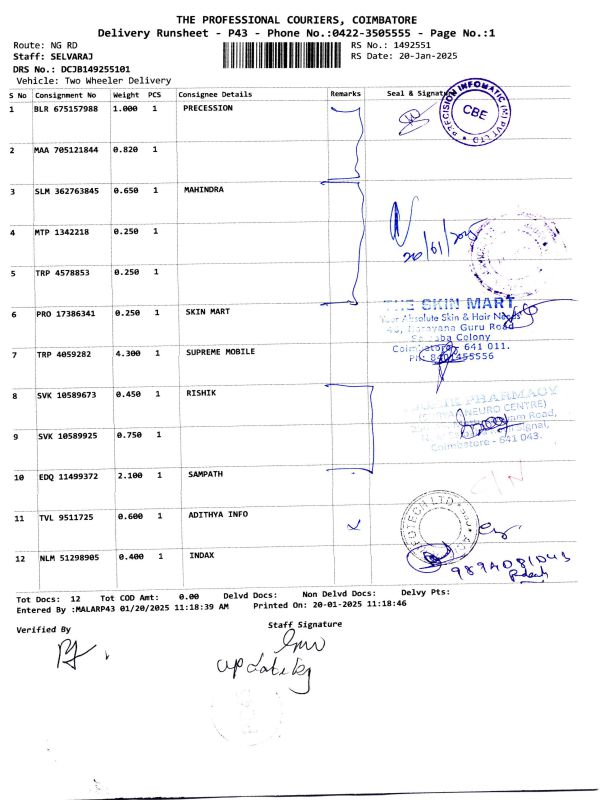 THE PROFESSIONAL COURIERS, COIMBATORE
Delivery Runsheet - P43 - Phone No.:0422-3505555 - Page No.:1
Route: NG RD RS No.: 1492551
Staff: SELVARAJ RS Date: 20-Jan-2025
DRS No.: DCJB149255101
Vehicle: Two Wheeler Delivery
S No Consignment No Weight PCS Consignee Details Remarks Seal & Signature
1 BLR 675157988 1.000 1 PRECESSION
PRECISION INFOMATIC (M) PVT LTD
CBE
2 MAA 705121844 0.820 1
3 SLM 362763845 0.650 1 MAHINDRA
4 MTP 1342218 0.250 1
20/01/2025
5 TRP 4578853 0.250 1
6 PRO 17386341 0.250 1 SKIN MART
THE SKIN MART
Your Absolute Skin & Hair Needs
Narayana Guru Road
Colony
Coimbatore - 641 011.
Ph: 8401455556
7 TRP 4059282 4.300 1 SUPREME MOBILE
8 SVK 10589673 0.450 1 RISHIK
PHARMACY
(NEURO CENTRE)
Road,
Signal,
Coimbatore - 641 043.
9 SVK 10589925 0.750 1
10 EDQ 11499372 2.100 1 SAMPATH
11 TVL 9511725 0.600 1 ADITHYA INFO
12 NLM 51298905 0.400 1 INDAX
9894081043
Tot Docs: 12 Tot COD Amt: 0.00 Delvd Docs: Non Delvd Docs: Delvy Pts:
Entered By :MALARP43 01/20/2025 11:18:39 AM Printed On: 20-01-2025 11:18:46
Verified By Staff Signature